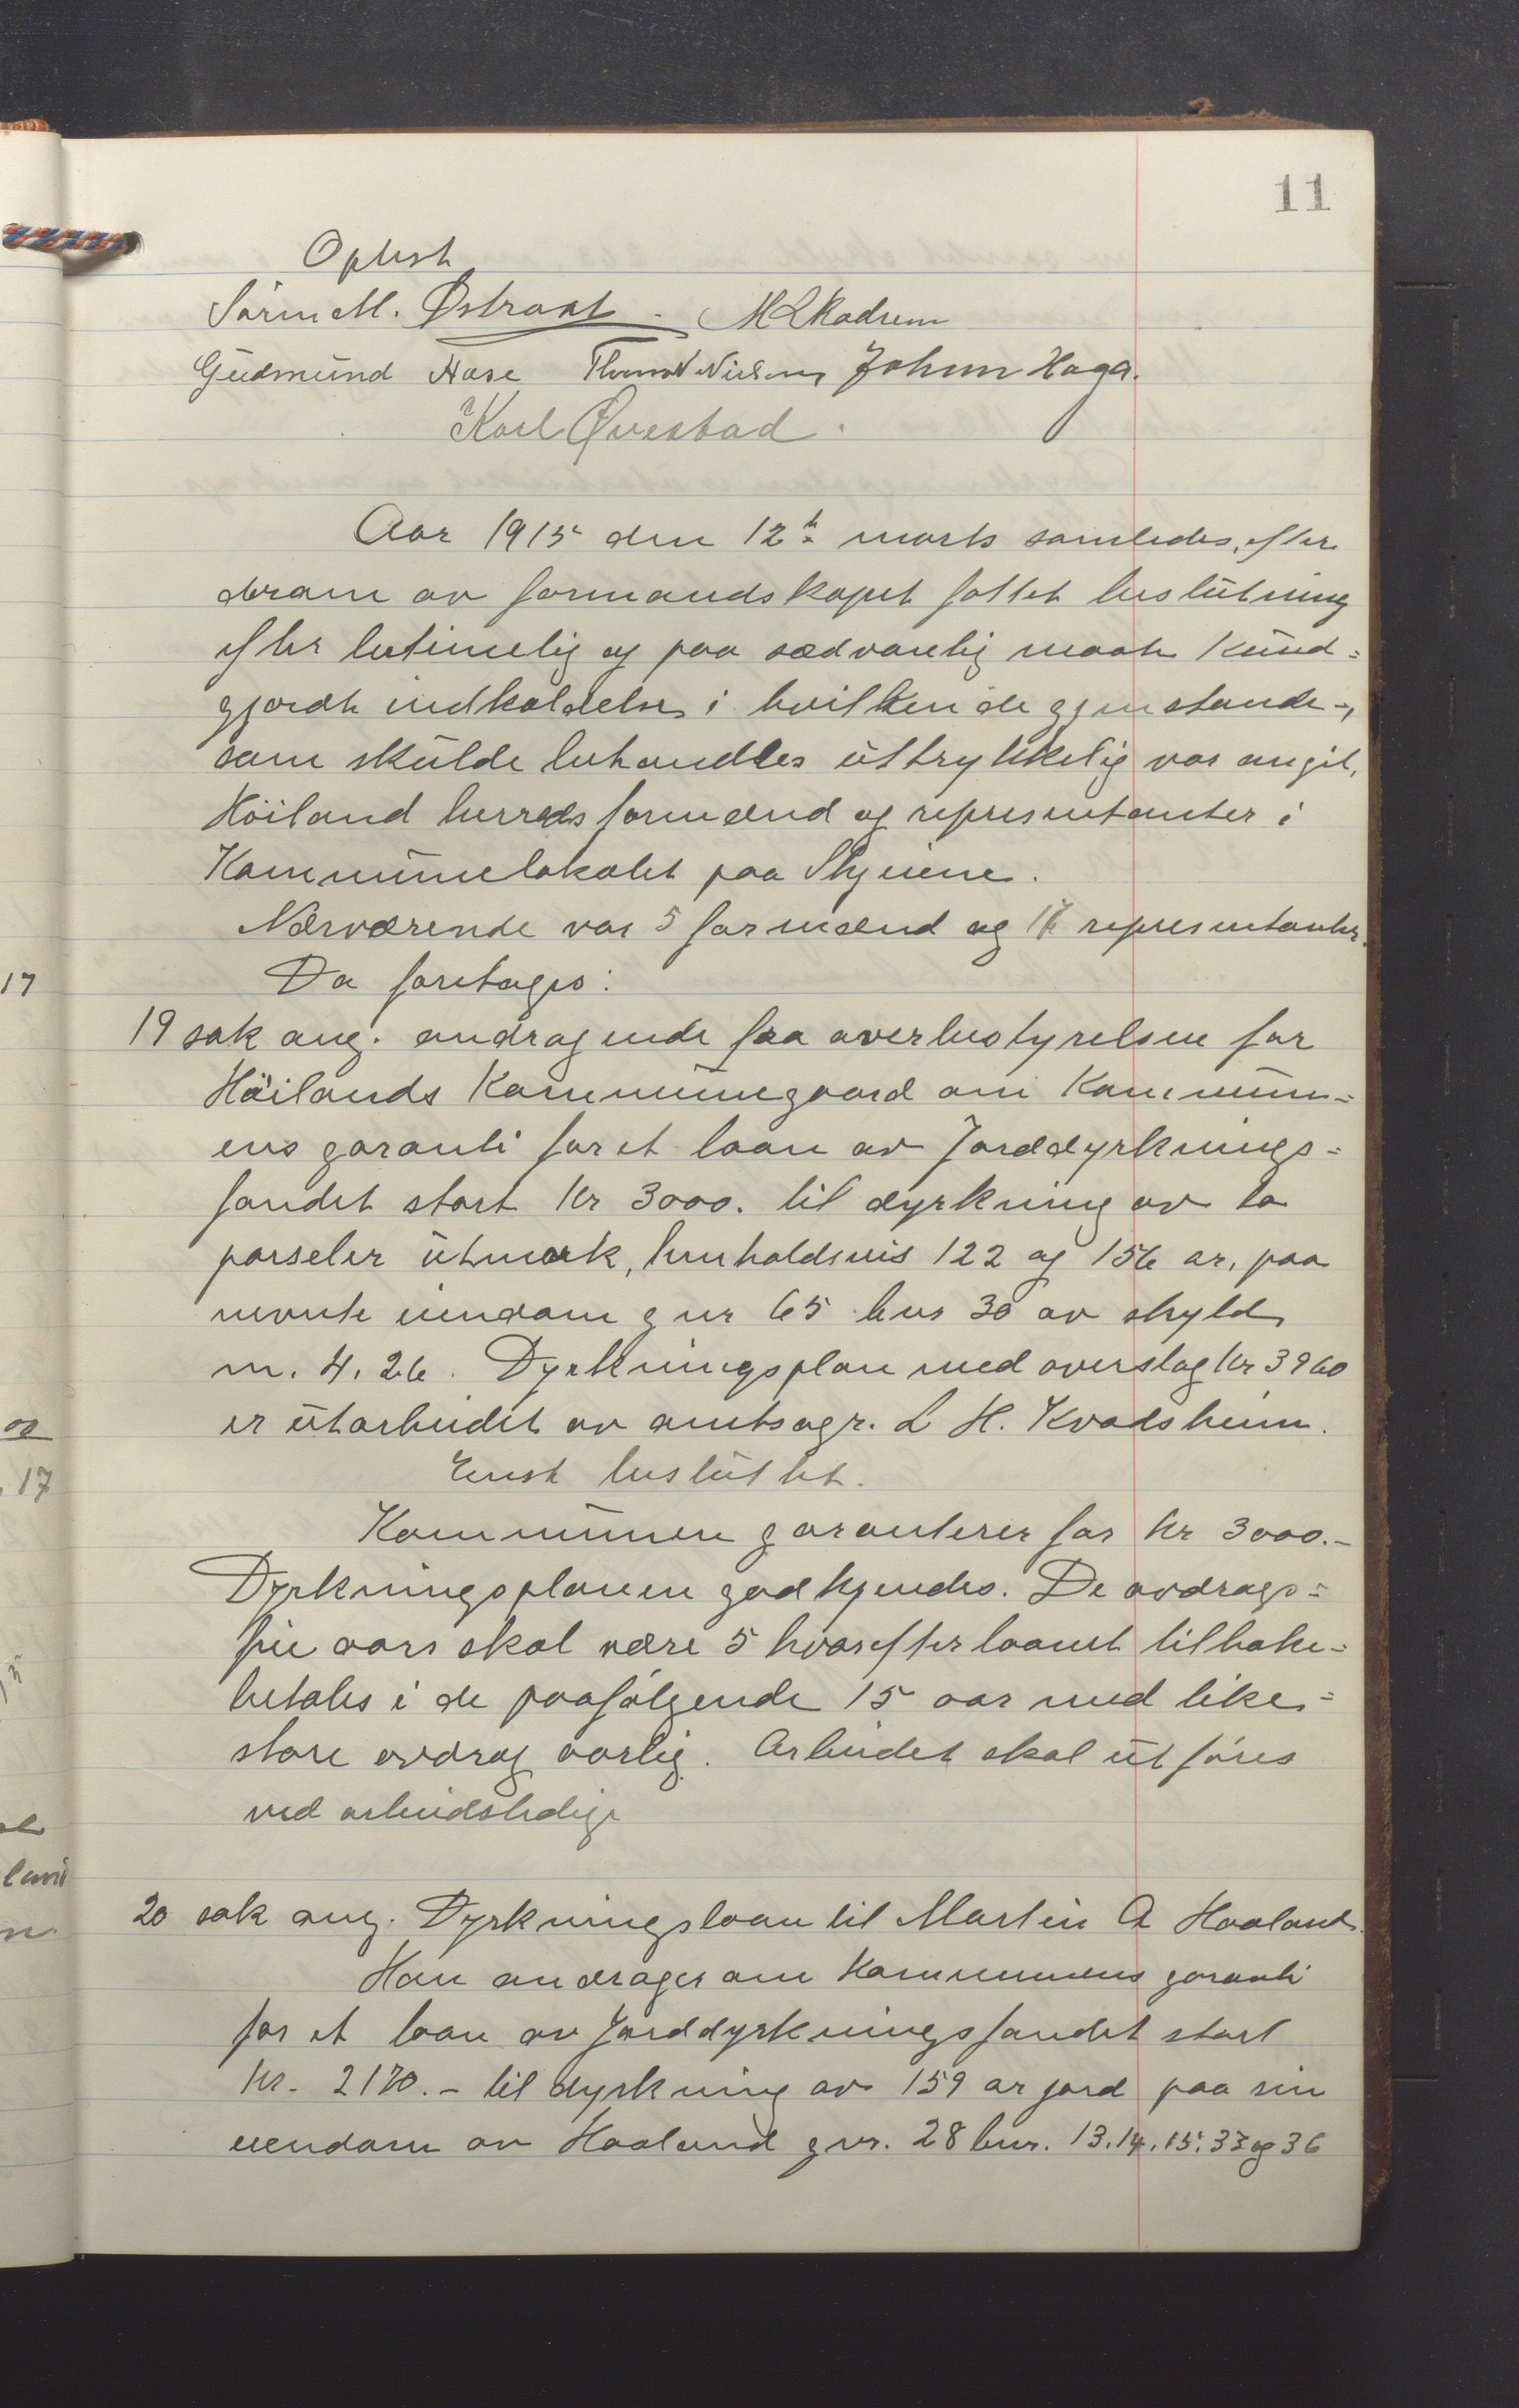 11
Oplest
Sørin M. Østraat. M L Kadrem
Gudmund Aase Thomas Nielsen Johnn Haga.
Karl Øvestad.
Aar 1915 den 12t marts samledes, efter
derom av formandskapet fattet beslutning
efter betimelig og paa sædvanlig maate kund=
gjordte indkaldelse i hvilken de gjenstande,
som skulde behandles uttrykkelig var angit,
Höiland herreds formænd og representanter i
Kommunelokalet paa Skjeiene.
Nærværende var 5 formænd og representanter.
Da foretages:
19 sak ang. andragende fra overbestyrelsen for
Höilands Kommunegaard om Kommun=
ens garanti for et laan av Jorddyrknings=
fondet stort Kr 3000. til dyrkning av to
parseler utmark, henholdsvis 122 og 156 ar, paa
nevnte eiendom gnr 65 bnr 30 av skyld
m. 4.26. Dyrkningsplan med overslag Kr 3960
er utarbeidet av amtsagr. L H. Kvadsheim.
Enst besluttet.
Kommunen garanterer for kr 3000.-
Dyrkningsplanen godkjendes. De avdrags=
frie aars skal være 5 hvorefter laanet tilbake=
betales i de paafølgende 15 aar med like=
store avdrag aarlig. Arbeidet skal utføres
ved arbeidsledige
20 sak ang. Dyrkningslaan til Martin A Haaland.
Han andrages om Kommunens garanti
for et laan av Jorddyrkningsfondet stort
Kr. 2170.- til dyrkning av 159 ar jord paa sin
eiendom av Haaland gnr. 28 bnr. 13.14.15.33 og 36
17
17